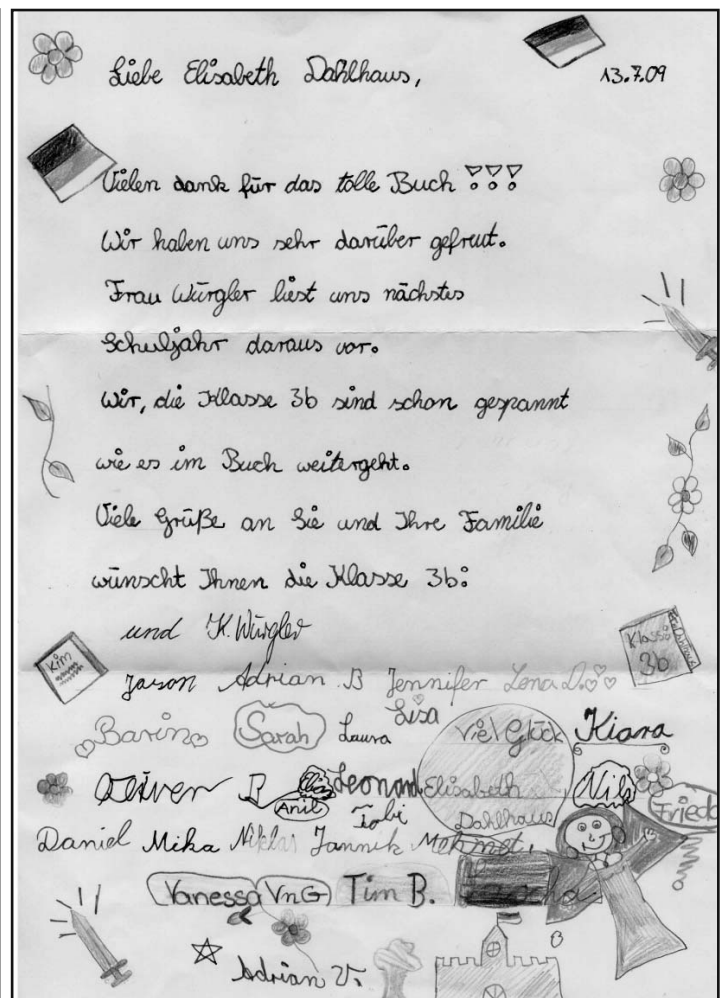 Liebe Elisabeth Dahlhaus,
13.7.09
Vielen dank für das tolle Buch !!!
Wir haben uns sehr darüber gefreut.
Frau Würgler liest uns nächstes
Schuljahr daraus vor.
Wir, die Klasse 3b sind schon gespannt
wie es im Buch weitergeht.
Viele Grüße an Sie und Ihre Familie
wünscht Ihnen die Klasse 3b:
und K. Würgler
Kim
Klasse 3b
Jason Adrian B Jennifer Lena D.
Barin Sarah Laura Lisa Viel Glück Kiara
Oliver B Leonard Elisabeth Nils
Anil Tobi Dahlhaus Frieda
Daniel Mika Niklas Jannik Mehmet
Vanessa VnG Tim B.
Adrian V.